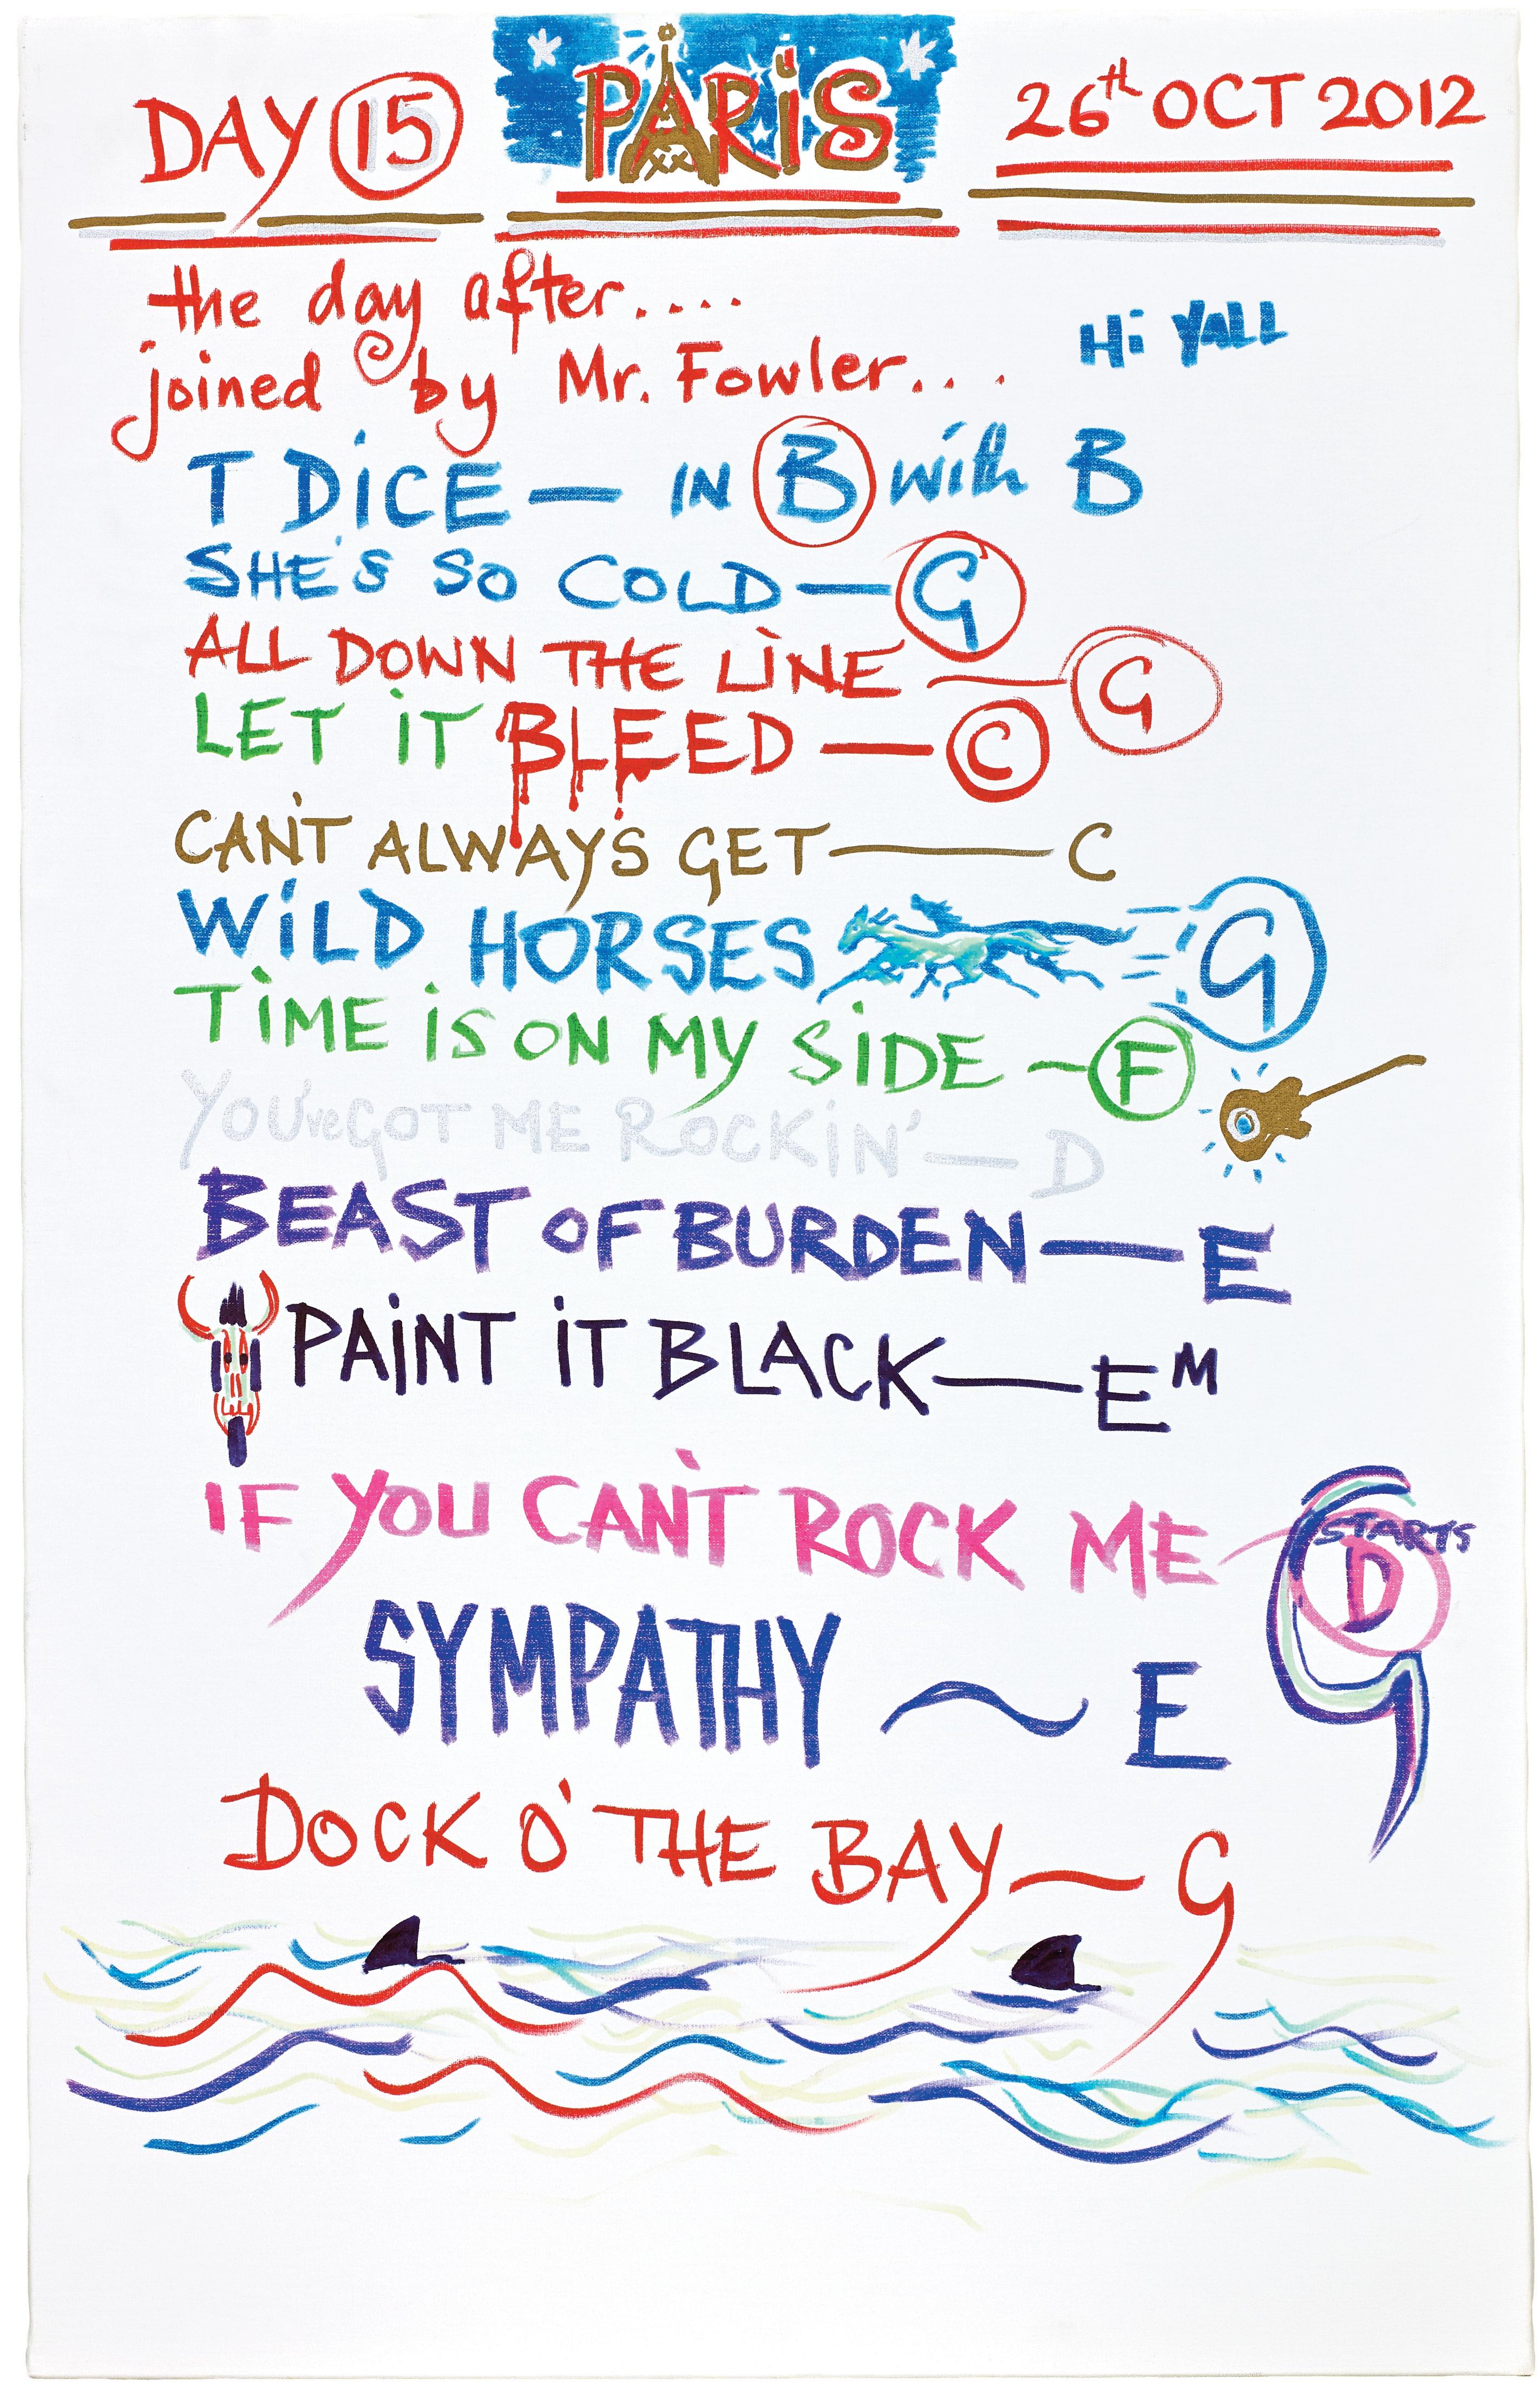 DAY 15 PARiS 26th OCT 2012
the day after....
Hi YALL
joined by Mr. Fowler...
T DiCE — IN B with B
SHE'S SO COLD — G
ALL DOWN THE LINE — G
LET iT BLEED — C
CAN'T ALWAYS GET — C
WiLD HORSES G
TiME iS ON MY SiDE ~ F
YOU'veGOT ME ROCKiN' — D
BEAST OF BURDEN — E
PAiNT iT BLACK — EM
IF YOU CAN'T ROCK ME G STARTS D
SYMPATHY ~ E
DOCK O' THE BAY ~ G